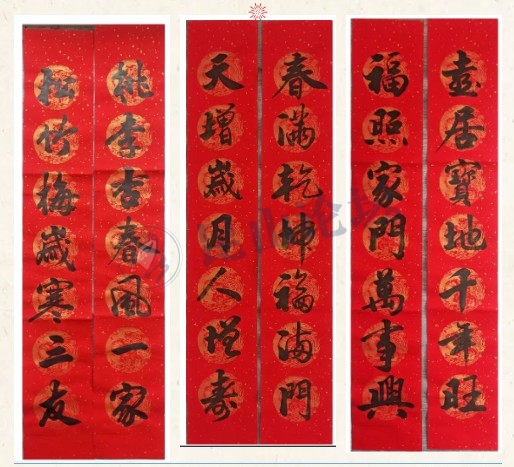 喜居寶地千年旺
福照家門萬事興
春滿乾坤福滿門
天增歲月人增壽
桃李杏春風一家
松竹梅歲寒三友